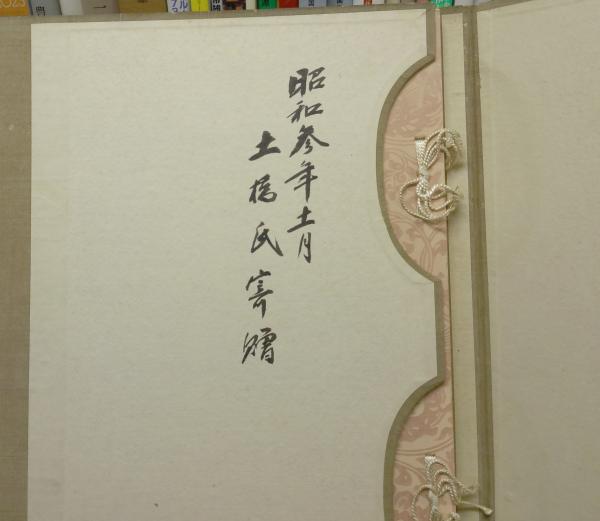 昭和参年十一月
土橋氏寄贈